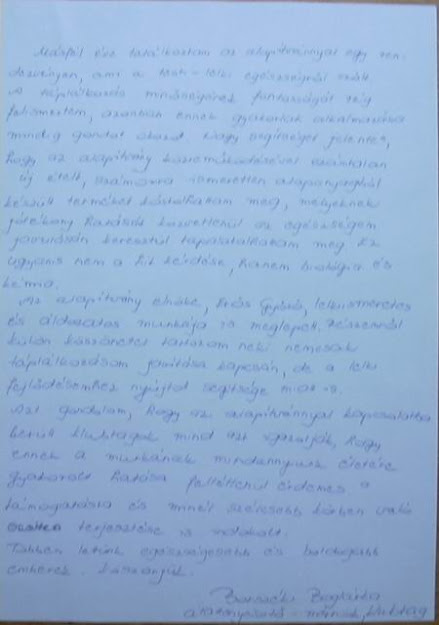 Másfél éve találkoztam az alapítvánnyal egy ren-
dezvényen, ami a testi-lelki egészségről szólt.
A táplálkozás minőségének fontosságát rég
felismertem, azonban ennek gyakorlati alkalmazása
mindig gondot okozott. Nagy segítséget jelentett,
hogy az alapítvány közreműködésével számtalan
új ételt, számomra ismeretlen alapanyagból
készült terméket kóstolhattam meg, melyeknek
jótékony hatását közvetlenül az egészségem
javulásán keresztül tapasztalhattam meg. Ez
ugyanis nem a hit kérdése, hanem biológia és
kémia.
Az alapítvány elnöke, Győző, lelkiismeretes
és áldozatos munkája is meglepett. Részemről
külön köszönettel tartozom neki nemcsak
táplálkozásom javítása kapcsán, de a lelki
fejlődésemhez nyújtott segítsége miatt is.
Azt gondolom, hogy az alapítvánnyal kapcsolatba
került klubtagok mind azt igazolják, hogy
ennek a munkának mindannyiunk életére
gyakorolt hatása feltétlenül érdemes a
támogatásra és minél szélesebb körben való
terjesztése is indokolt.
Többen lettünk egészségesebb és boldogabb
emberek. Köszönjük.
Boglárka
klubtag